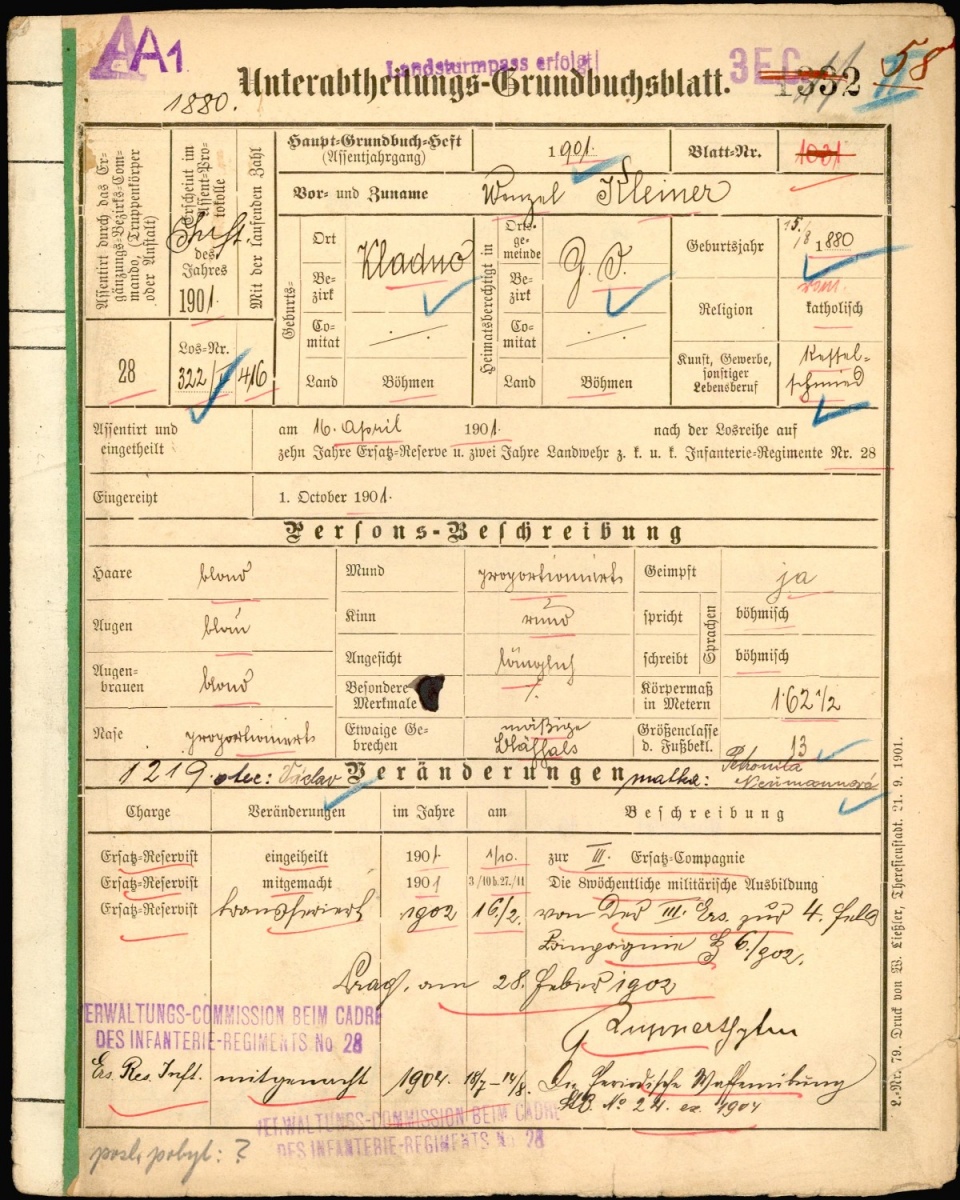 AA1
Landsturmpass erfolgt!
Unterabtheilungs-Grundbuchsblatt.
1332
58
1880.
Assentirt durch das Er-
gänzungs-Bezirks-Com-
mando, (Truppenkörper
oder Anstalt)
28
Erscheint im
Assent-Pro-
tokolle
Inft.
des
Jahres
1901.
Mit der laufenden Zahl
Los-Nr.
322/I
416
Haupt-Grundbuch-Heft
(Assentjahrgang)
1901.
Blatt-Nr.
1031
Vor- und Zuname
Wenzel Kleiner
Geburts-
Ort
Kladno
Be-
zirk
Co-
mitat
Land
Böhmen
Heimatsberechtigt in
Orts-
ge-
meinde
Be-
zirk
Co-
mitat
Land
Böhmen
Geburtsjahr
15./8 1880
Religion
röm.
katholisch
Kunst, Gewerbe,
sonstiger
Lebensberuf
Kessel-
schmied
Assentirt und
eingetheilt
am 16. April 1901. nach der Losreihe auf
zehn Jahre Ersatz-Reserve u. zwei Jahre Landwehr z. k. u. k. Infanterie-Regimente Nr. 28
Eingereiht
1. October 1901.
Persons-Beschreibung
Haare blond
Mund proportioniert
Geimpft ja
Augen blau
Kinn rund
spricht
Sprachen
böhmisch
Augen-
brauen
blond
Angesicht länglich
schreibt
böhmisch
Besondere
Merkmale
/.
Körpermaß
in Metern
1·62 1/2
Nase proportioniert
Etwaige Ge-
brechen
mäßige
Blähhals
Größenclasse
d. Fußbekl.
13
1219 otec: Václav
Veränderungen
matka: Petronila
Neumannová
Charge Veränderungen im Jahre am Beschreibung
Ersatz-Reservist eingeiheilt 1901. 1/10. zur III. Ersatz-Compagnie
Ersatz-Reservist mitgemacht 1901 3/10 b. 27./11 Die 8wöchentliche militärische Ausbildung
Ersatz-Reservist transferiert 1902 16/2. von der III. Ers. zur 4. Feld
Compagnie 6./902.
Prag, am 28. Feber 1902
VERWALTUNGS-COMMISSION BEIM CADRE
DES INFANTERIE-REGIMENTS No 28
Ers. Res. Inft. mitgemacht 1904. 18/7–14/8. Die periodische Waffenübung
No 24 ex 1904
VERWALTUNGS-COMMISSION BEIM CADRE
DES INFANTERIE-REGIMENTS No 28
posl. pobyt: ?
L.-Nr. 79. Druck von W. Ließler, Theresienstadt. 21. 9. 1901.